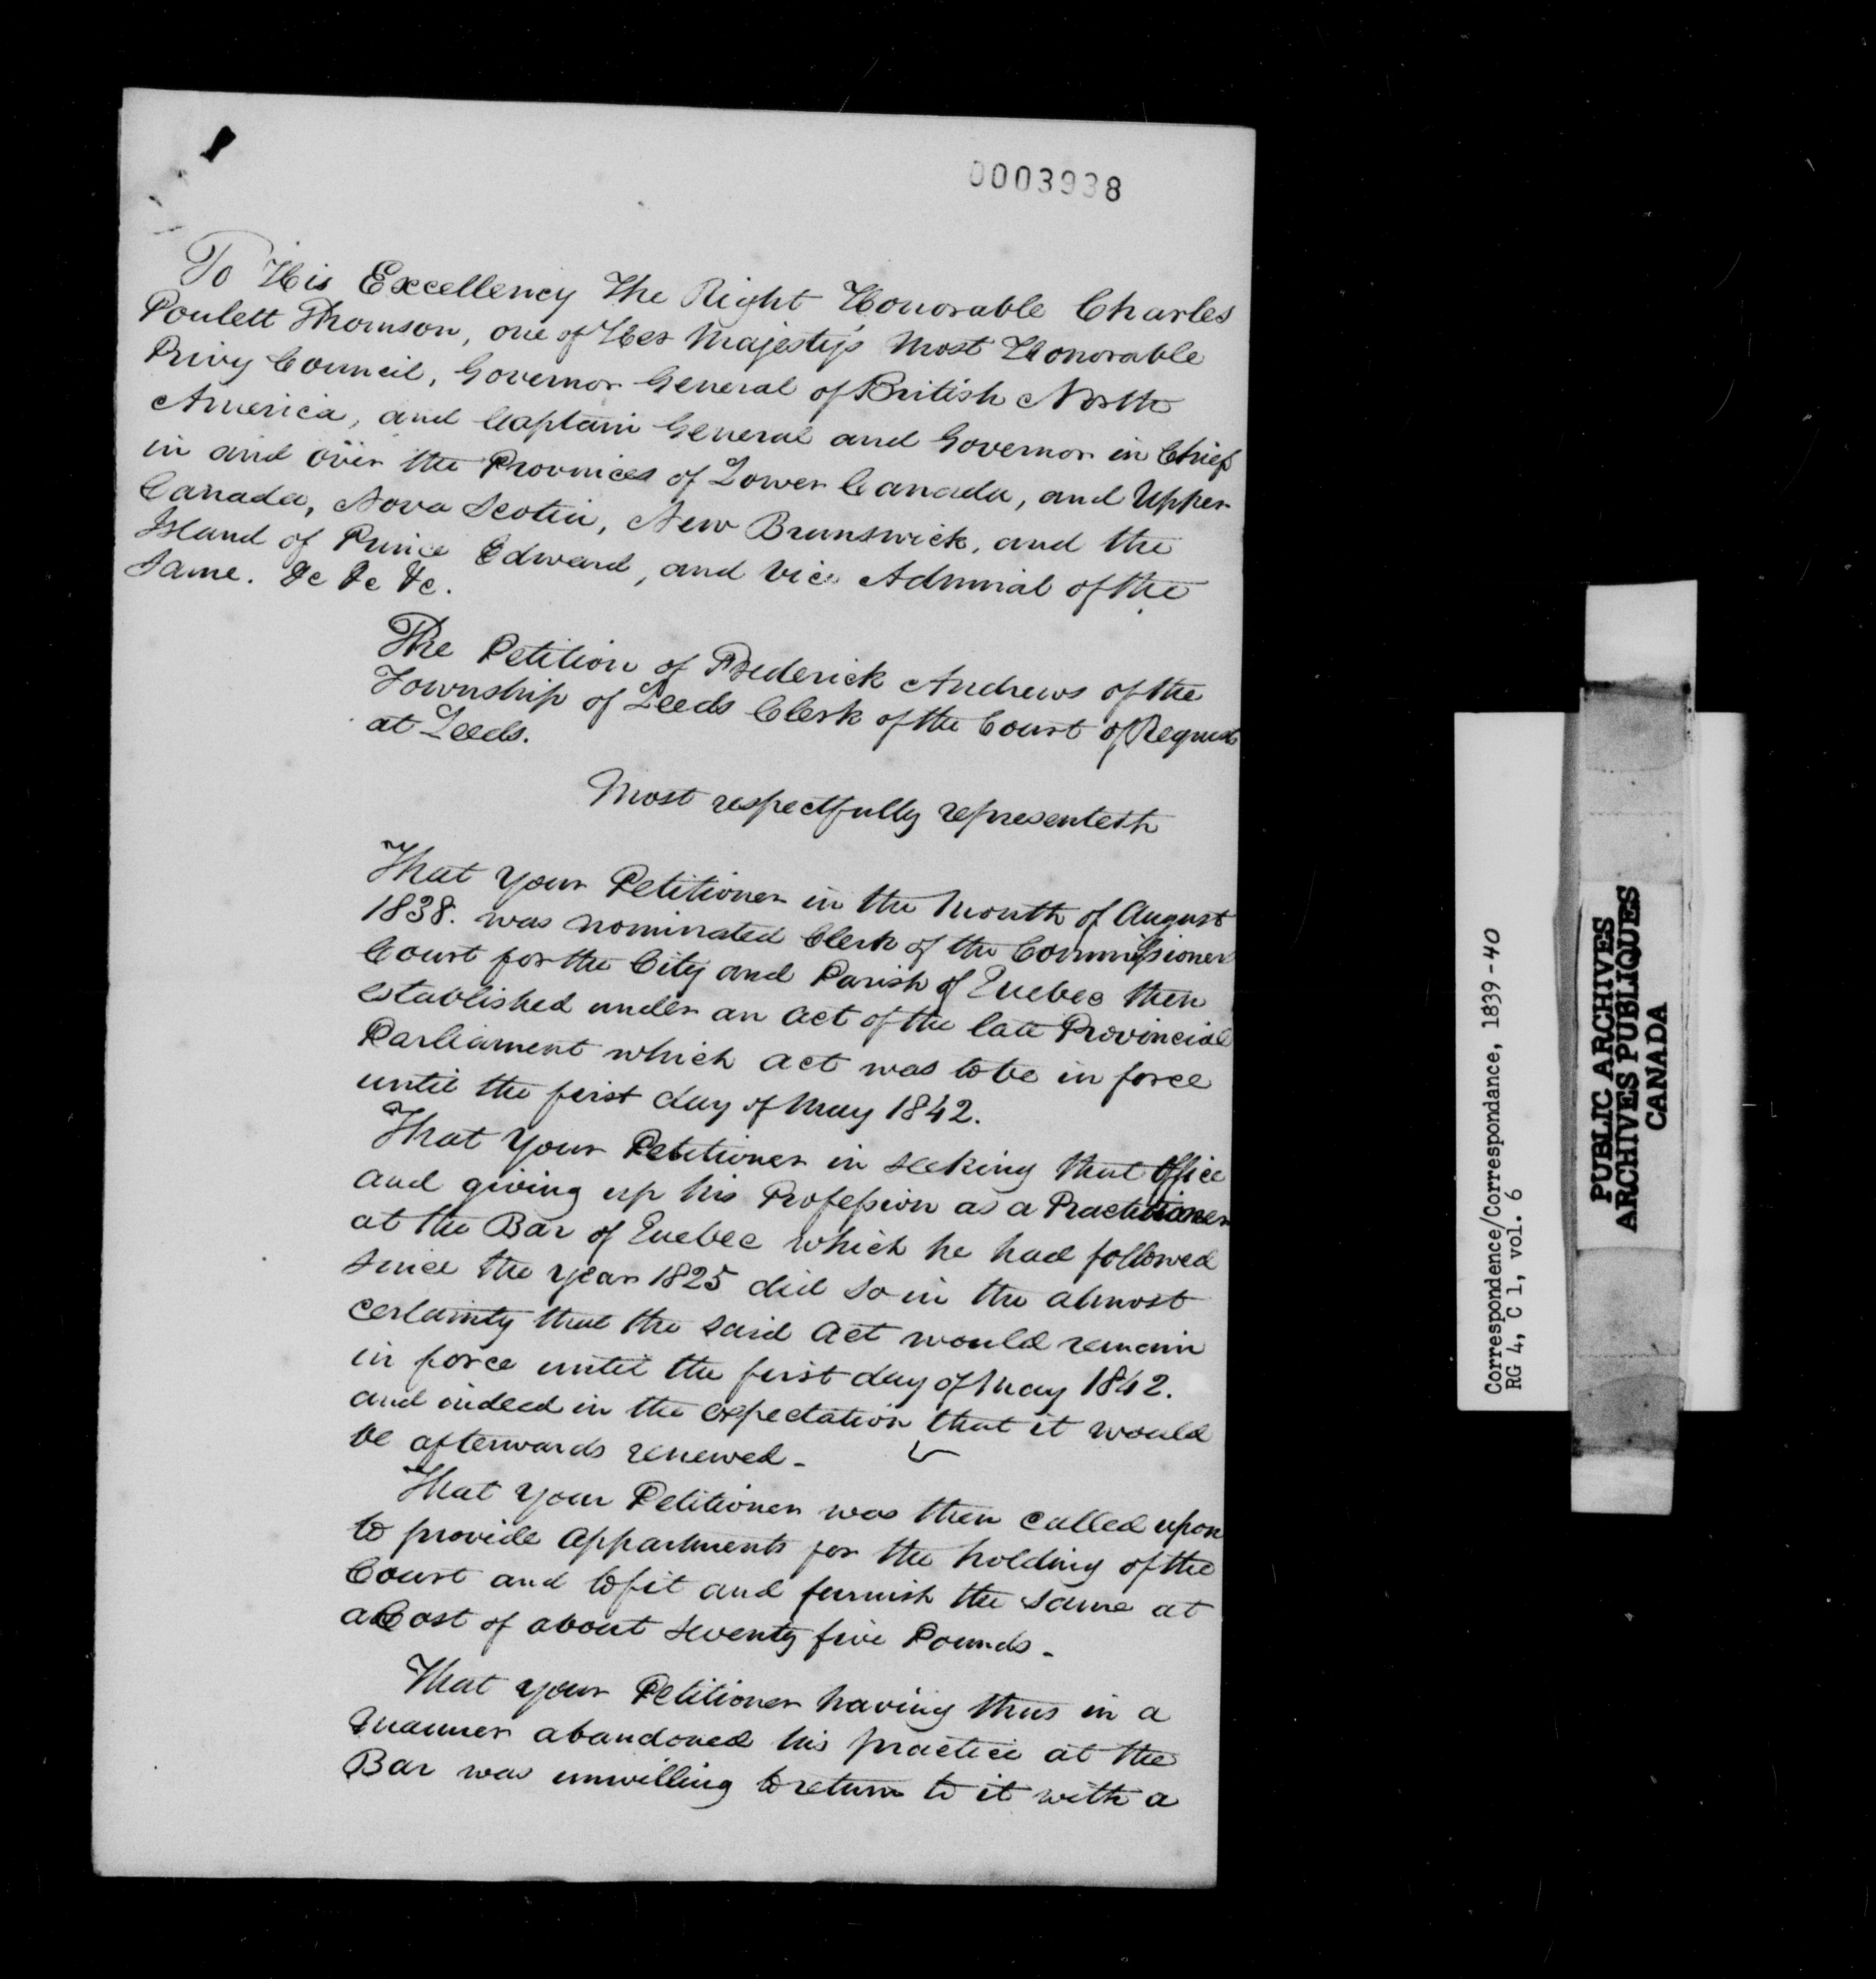 0003938
To His Excellency The Right Honorable Charles
Poulett Thomson, one of Her Majesty's Most Honorable
Privy Council, Governor General of British North
America, and Captain General and Governor in Chief
in and over the Provinces of Lower Canada, and Upper
Canada, Nova Scotia, New Brunswick, and the
Island of Prince Edward, and Vice Admiral of the
Same. &c &c &c.
The Petition of Frederick Andrews of the
Township of Leeds Clerk of the Court of Requests
at Leeds.
Most respectfully representeth
That your Petitioner in the Month of August
1838. was nominated Clerk of the Commissioners
Court for the City and Parish of Quebec then
established under an act of the late Provincial
Parliament which act was to be in force
until the first day of May 1842.
That your Petitioner in seeking that Office
and giving up his Profession as a Practitioner
at the Bar of Quebec which he had followed
since the year 1825 did so in the almost
certainty that the said Act would remain
in force until the first day of May 1842.
and indeed in the expectation that it would
be afterwards renewed -
That your Petitioner was then called upon
to provide appartments for the holding of the
Court and to fit and furnish the same at
a Cost of about seventy five Pounds -
That your Petitioner having thus in a
manner abandoned his practice at the
Bar was unwilling to return to it with a
Correspondence/Correspondance, 1839-40
RG 4, C 1, vol. 6
PUBLIC ARCHIVES
ARCHIVES PUBLIQUES
CANADA